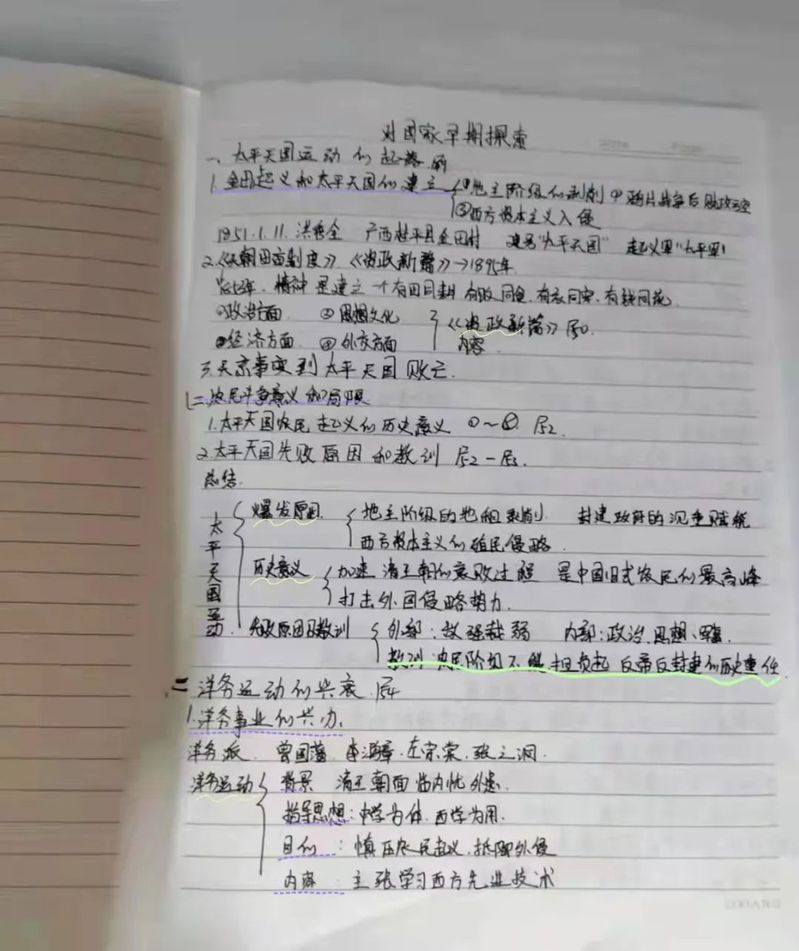 对国家早期探索
一、太平天国运动的起落
1.金田起义和太平天国的建立 ①地主阶级的剥削 ②鸦片战争后
③西方资本主义入侵
1851.1.11. 洪秀全 广西桂平县金田村 建号"太平天国" 起义军"太平军"
2.《天朝田亩制度》《资政新篇》→
精神是建立一个有田同耕 有饭同食,有衣同穿,有钱同花
①政治方面 ②思想文化 《资政新篇》
③经济方面 ④外交方面 内容
3.天京事变到太平天国败亡.
二农民斗争意义和局限
1.太平天国农民起义的历史意义 ①~
2.太平天国失败原因和教训
总结.
太平天国运动.
爆发原因 地主阶级的地租剥削 封建政府的沉重赋税
西方资本主义的殖民侵略.
历史意义 加速清王朝的衰败过程 是中国旧式农民的最高峰
打击外国侵略势力.
失败原因及教训 外部:敌强我弱 内部:政治、思想、军事.
教训 农民阶级不能担负起 反帝反封建的历史重任
二 洋务运动的兴衰
1.洋务事业的兴办.
洋务派. 曾国藩. 李鸿章. 左宗棠. 张之洞.
洋务运动 背景 清王朝面临内忧外患.
指导思想:中学为体.西学为用.
目的:镇压农民起义,抵御外侵
内容:主张学习西方先进技术
LIXIANG